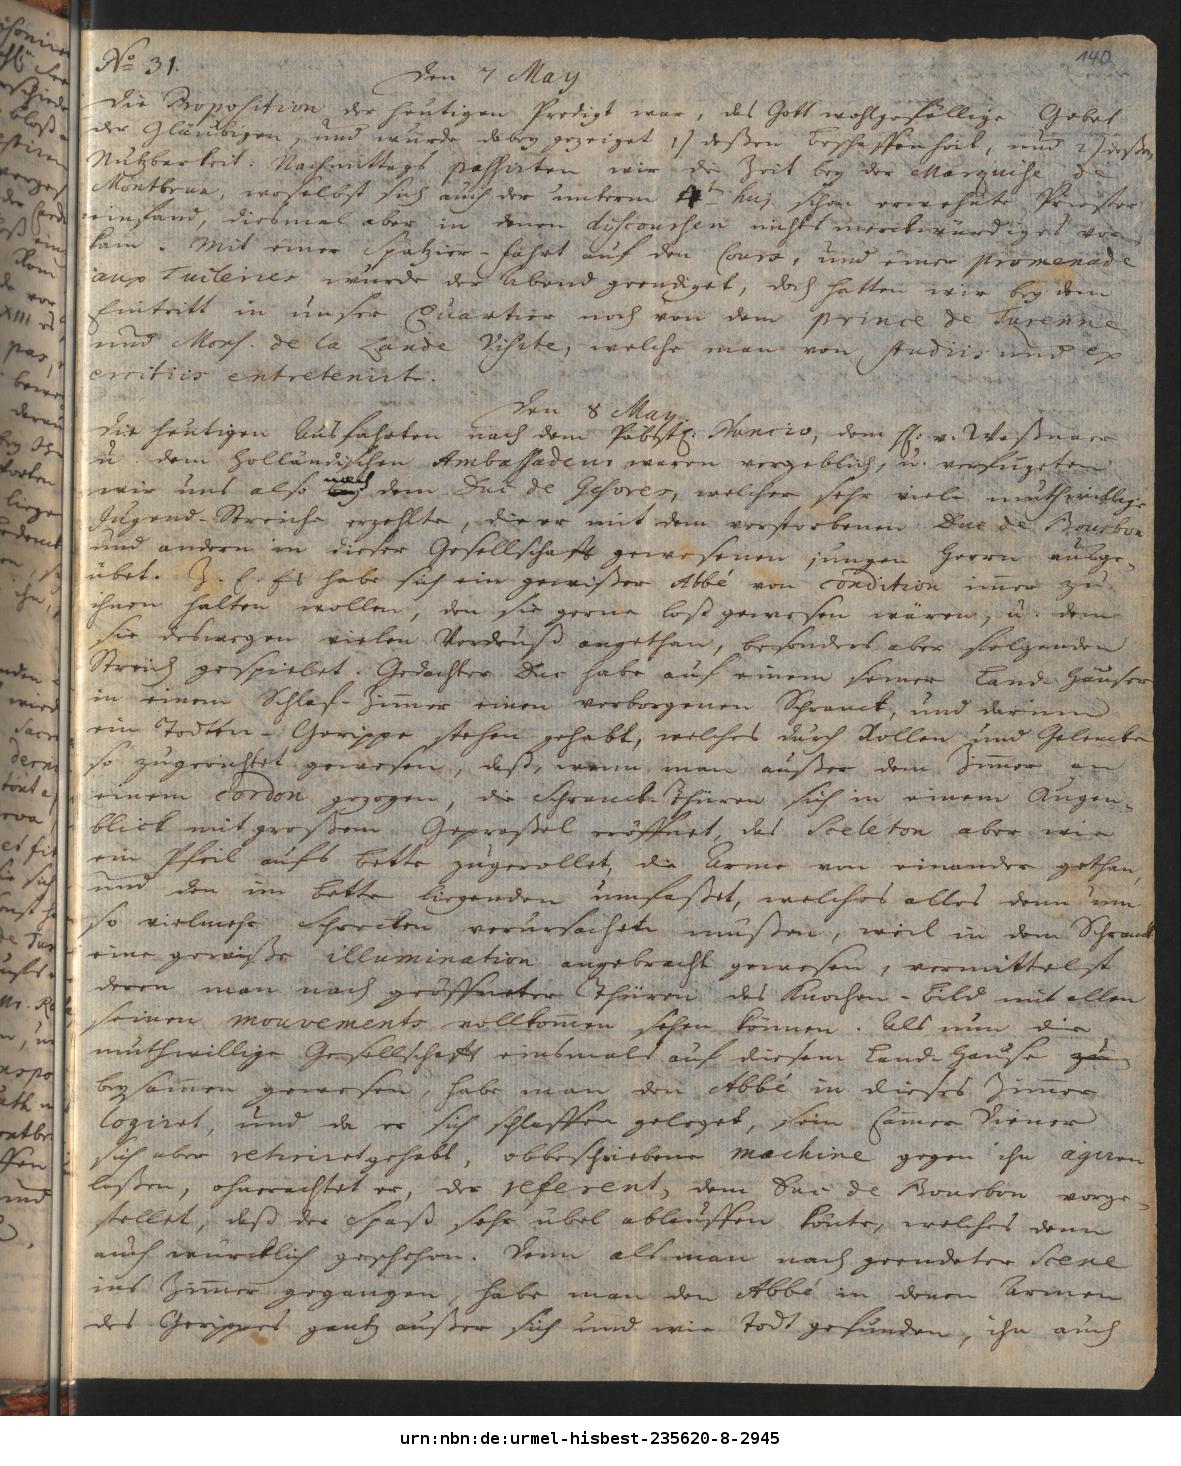 140
No 31.
Den 7 May
Die Proposition der heutigen Predigt war, das Gott wohlgefällige Gebet
der Gläubigen, und wurde dabey gezeiget 1) deßen Beschaffenheit, und 2) deßen
Nutzbarkeit. Nachmittags passirten wir die Zeit bey der Marquise de
Montbrun, woselbst sich auch der unterm 4t huj. schon erwehnte Priester
einfand, diesmal aber in denen discourshen nichts merckwürdiges vor-
kam. Mit einer Spatzier-fahrt auf den Cours, und einer promenade
aux Tuileries wurde der Abend geendiget, doch hatten wir bey dem
Eintritt in unser Quartier noch von dem prince de Turenne
und Mons. de la Lande Visite, welche man von studiis und ex
ercitiis entretenirt.
Den 8 May
Die heutigen Ausfahrten nach dem Päbstl. Nuncio, dem H. v.
u. dem Holländischen Ambassadeur waren vergeblich, u. verfügeten
wir uns also nach dem Duc de Gesvres, welcher sehr viele muthwillige
Jugend-Streiche erzehlte, die er mit dem verstorbenen Duc de Bourbon
und andern in dieser Gesellschaft gewesenen jungen Herrn ausge-
übet. Z. E. Es habe sich ein gewißer Abbé von condition immer zu
ihnen halten wollen, den sie gerne loß gewesen wären, u. dem
sie deswegen vielen Verdruß angethan, besonders aber folgenden
Streich gespielet. Gedachter Duc habe auf einem seiner Land-Häuser
in einem Schlaf-Zimmer einen verborgenen Schranck, und darinn
ein Todten-Gerippe stehen gehabt, welches durch Rollen und Gelencke
so zugerichtet gewesen, daß, wenn man außer dem Zimmer an
einem Cordon gezogen, die Schranck-Thüren sich in einem Augen-
blick mit großem Gepraßel eröffnet, das Sceleton aber wie
ein Pfeil aufs Bette zugerollet, die Arme von einander gethan,
und den im Bette liegenden umfaßet, welches alles denn um
so vielmehr Schrecken verursachen müßen, weil in dem Schranck
eine gewiße illumination angebracht gewesen, vermittelst
deren man nach geöffneten Thüren das Knochen-Bild mit allen
seinen mouvements vollkommen sehen können. Als nun die
muthwillige Gesellschafft einsmals auf diesem Land-Hause zu
beysammen gewesen, habe man den Abbé in dieses Zimmer
logiret, und da er sich schlaffen geleget, sein Cammer Diener
sich aber retiriret gehabt, obbeschriebene machine gegen ihn agiren
laßen, ohnerachtet er, der referent, dem Duc de Bourbon vorge-
stellet, daß der Spaß sehr übel ablauffen könte, welches denn
auch würcklich geschehen. Denn als man nach geendeter Scene
ins Zimmer gegangen, habe man den Abbé in denen Armen
des Gerippes gantz außer sich und wie todt gefunden, ihn auch
urn:nbn:de:urmel-hisbest-235620-8-2945